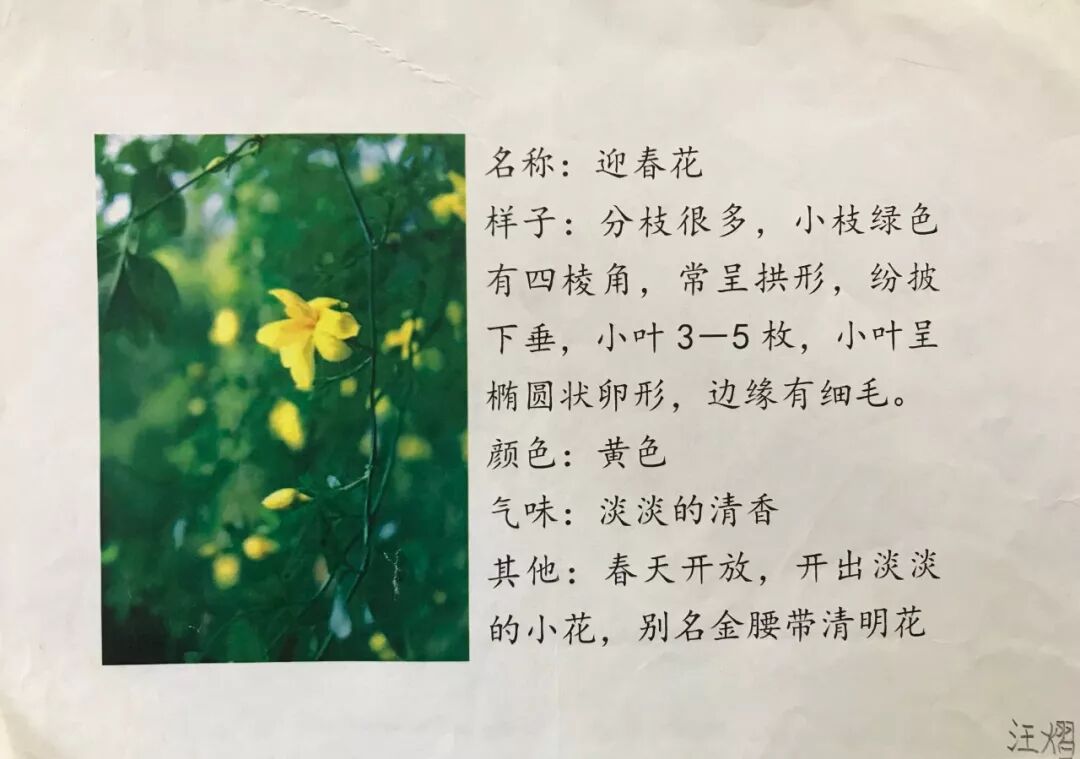 名称：迎春花
样子：分枝很多，小枝绿色
有四棱角，常呈拱形，纷披
下垂，小叶3—5枚，小叶呈
椭圆状卵形，边缘有细毛。
颜色：黄色
气味：淡淡的清香
其他：春天开放，开出淡淡
的小花，别名金腰带清明花
汪熠